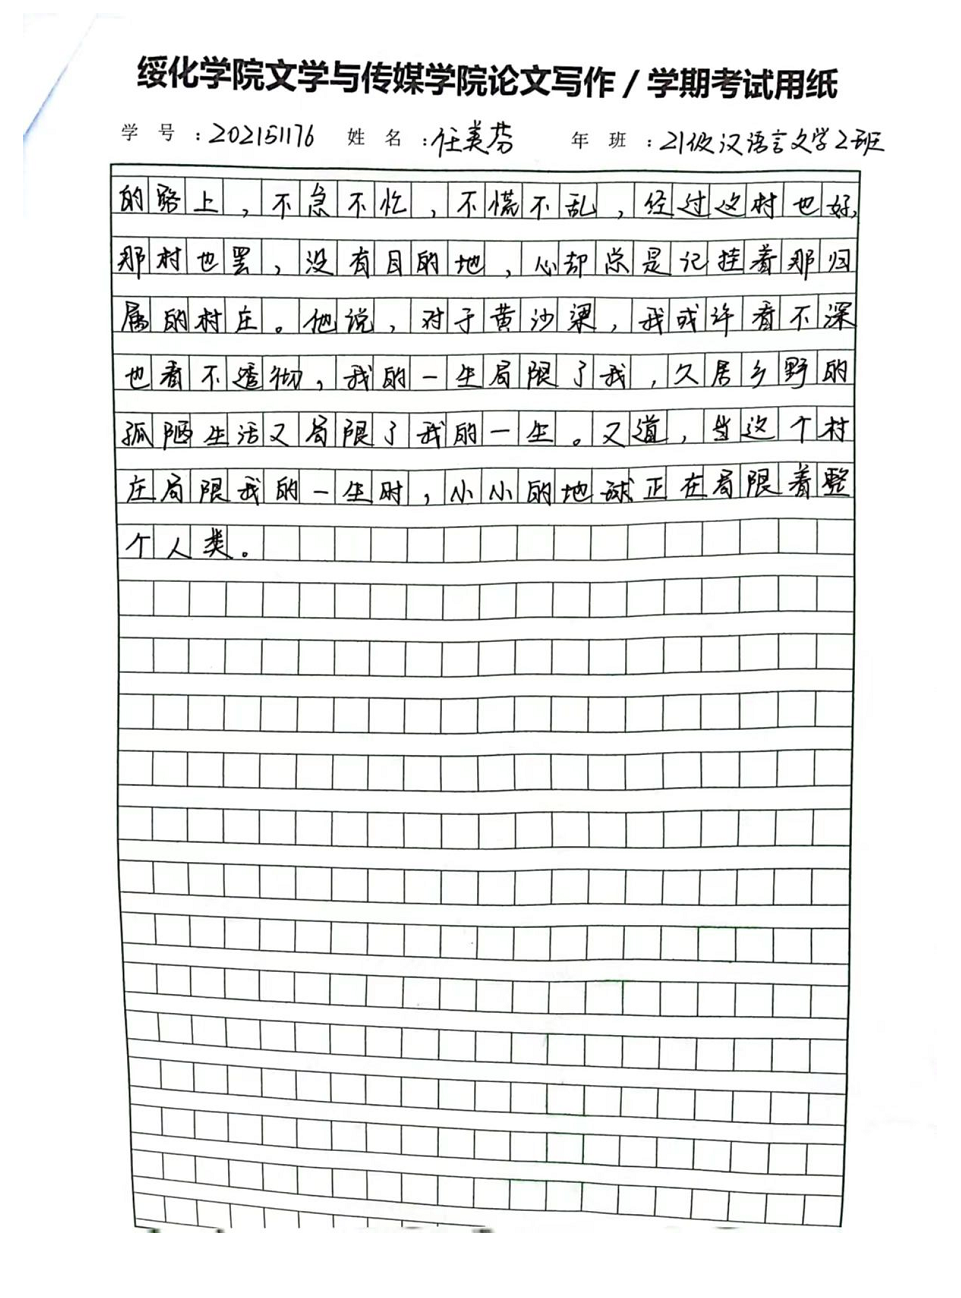 绥化学院文学与传媒学院论文写作 / 学期考试用纸
学 号 :202151176 姓 名 :任美芬 年 班 :21级汉语言文学2班
的路上，不急不忙，不慌不乱，经过这村也好，
那村也罢，没有目的地，心却总是记挂着那归
属的村庄。他说，对于黄沙梁，我或许看不深
也看不透彻，我的一生局限了我，久居乡野的
孤陋生活又局限了我的一生。又道，当这个村
庄局限我的一生时，小小的地球正在局限着整
个人类。